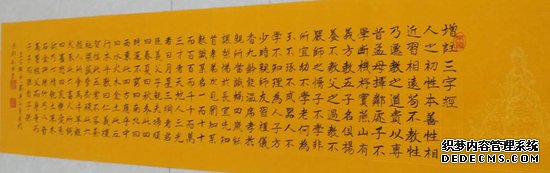 增註三字經
人之初性本善性相
近習相遠苟不教性
乃遷教之道貴以專
昔孟母擇鄰處子不
學斷機杼竇燕山有
義方教五子名俱揚
養不教父之過教不
嚴師之惰子不學非
所宜幼不學老何為
玉不琢不成器人不
學不知理為人子方
少時親師友習禮儀
香九齡能溫席孝於
親所當執融四歲能
讓梨弟於長宜先知
首孝弟次見聞知某
數識某名一而十十
而百百而千千而萬
三才者天地人三光
者日月星三綱者君
臣義父子親夫婦順
曰春夏曰秋冬此四
時運不窮曰南北曰
西東此四方應乎中
曰水火木金土此五
行本乎數曰仁義禮
智信此五常不容紊
稻粱菽麥黍稷此六
穀人所食馬牛羊雞
犬豕此六畜人所飼
曰喜怒曰哀懼愛惡
欲七情具匏土革木
石金絲與竹乃八音
高曾祖父而身身而
织梦内容管理系统
DEDECMS.COM